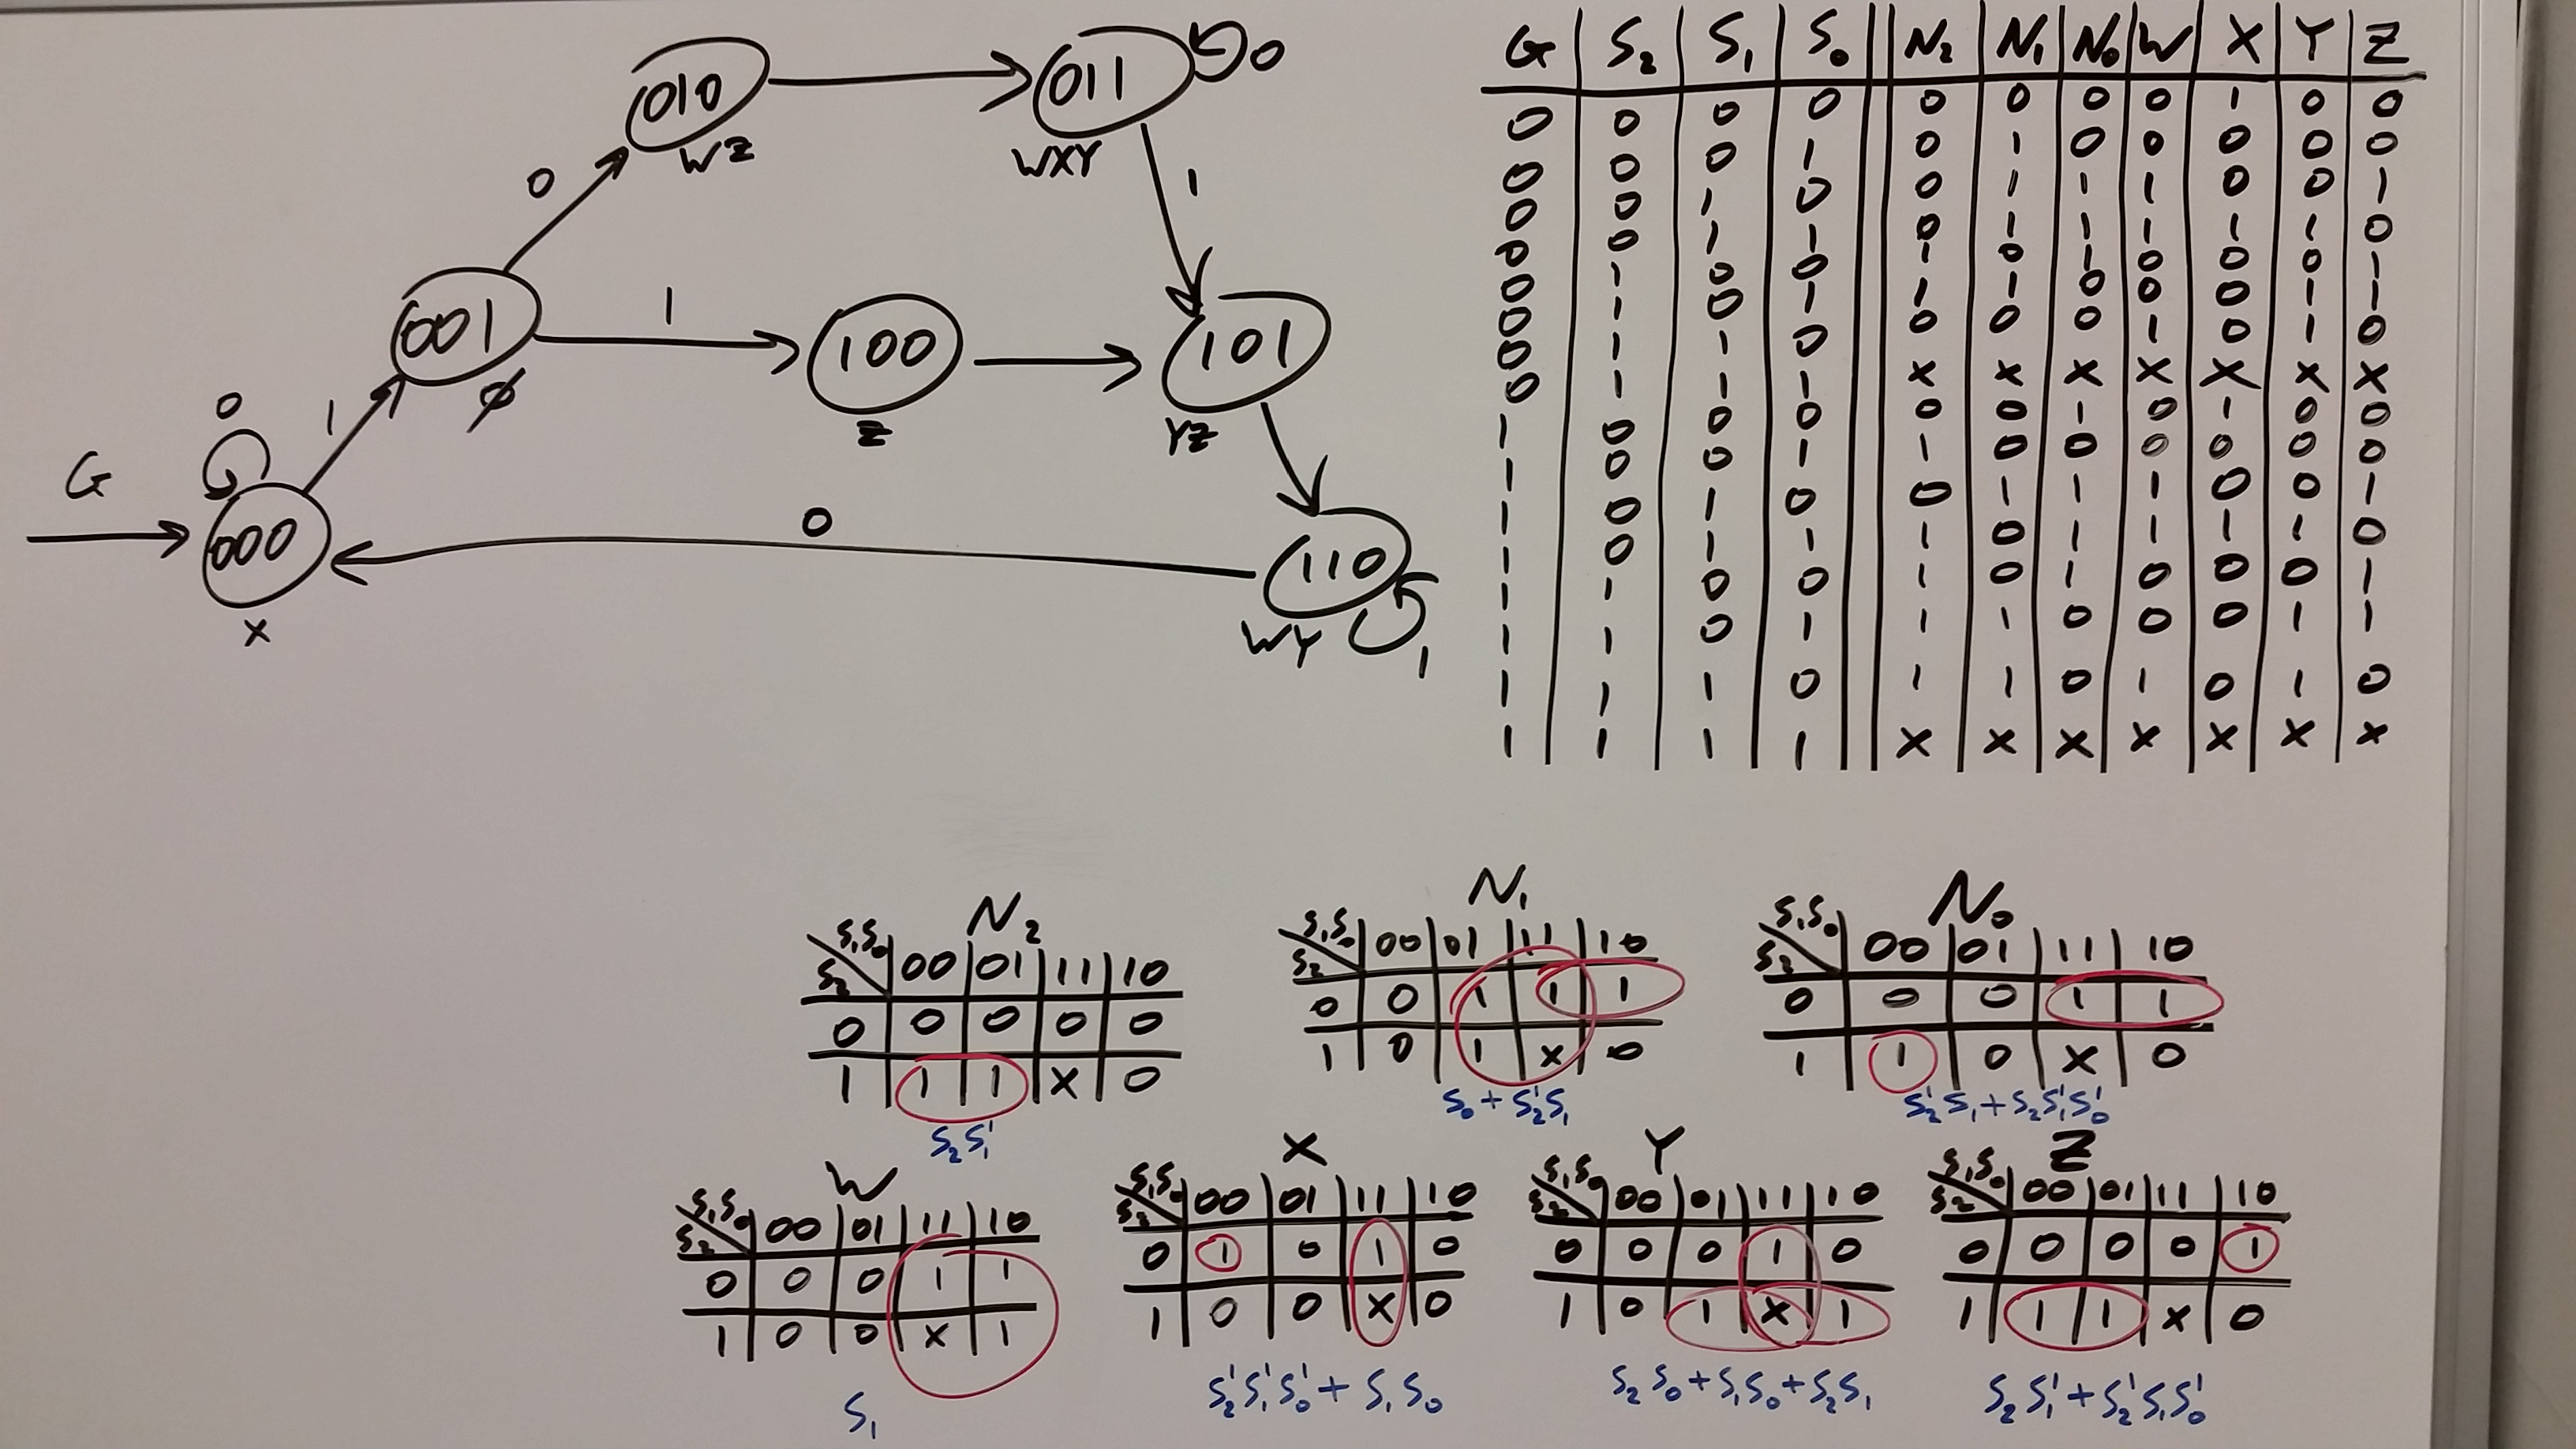 010
WZ
011
0
WXY
0
1
001
∅
1
100
Z
101
YZ
0
1
G
000
X
0
110
WY
1
G S₂ S₁ S₀ N₂ N₁ N₀ W X Y Z
0 0 0 0 0 0 0 0 1 0 0
0 0 0 1 0 1 0 0 0 0 0
0 0 1 0 0 1 1 1 0 0 1
0 0 1 1 0 1 1 1 1 1 0
0 1 0 0 1 0 1 0 0 0 1
0 1 0 1 1 1 0 0 0 1 1
0 1 1 0 0 0 0 1 0 1 0
0 1 1 1 X X X X X X X
1 0 0 0 0 0 1 0 1 0 0
1 0 0 1 1 0 0 0 0 0 0
1 0 1 0 0 1 1 1 0 0 1
1 0 1 1 1 0 1 1 1 1 0
1 1 0 0 1 0 1 0 0 0 1
1 1 0 1 1 1 0 0 0 1 1
1 1 1 0 1 1 0 1 0 1 0
1 1 1 1 X X X X X X X
N₂
S₁S₀ 00 01 11 10
S₂
0 0 0 0 0
1 1 1 X 0
S₂S₁'
N₁
S₁S₀ 00 01 11 10
S₂
0 0 1 1 1
1 0 1 X 0
S₀ + S₂'S₁
N₀
S₁S₀ 00 01 11 10
S₂
0 0 0 1 1
1 1 0 X 0
S₂'S₁ + S₂S₁'S₀'
W
S₁S₀ 00 01 11 10
S₂
0 0 0 1 1
1 0 0 X 1
S₁
X
S₁S₀ 00 01 11 10
S₂
0 1 0 1 0
1 0 0 X 0
S₂'S₁'S₀' + S₁S₀
Y
S₁S₀ 00 01 11 10
S₂
0 0 0 1 0
1 0 1 X 1
S₂S₀ + S₁S₀ + S₂S₁
Z
S₁S₀ 00 01 11 10
S₂
0 0 0 0 1
1 1 1 X 0
S₂S₁' + S₂'S₁S₀'